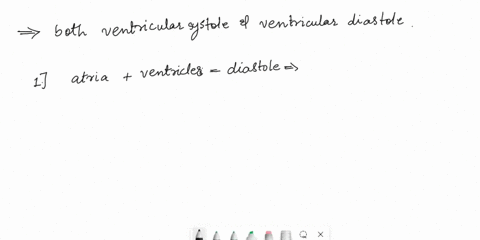 ⇒ both ventricular systole & ventricular diastole.
1] atria + ventricles = diastole ⇒